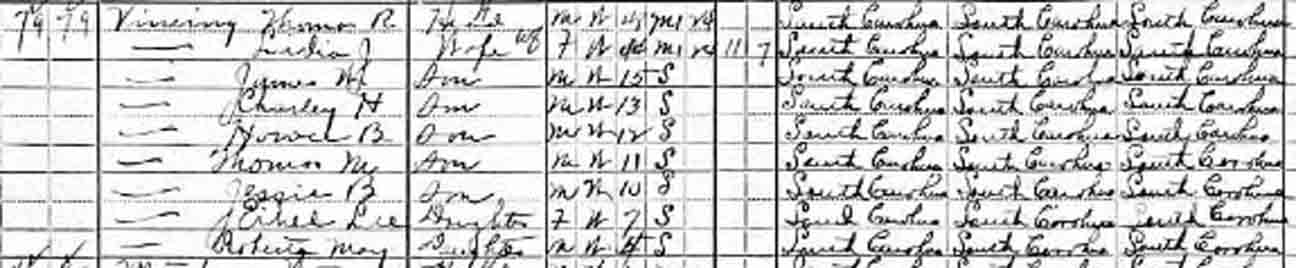 79 79 Vinsing Thomas R. Head M W M1 South Carolina South Carolina South Carolina
— J Wife F W M1 11 7 South Carolina South Carolina South Carolina
— James W Son M W 15 S South Carolina South Carolina South Carolina
— Charley H Son M W 13 S South Carolina South Carolina South Carolina
— B Son M W 12 S South Carolina South Carolina South Carolina
— Thomas M Son M W 11 S South Carolina South Carolina South Carolina
— Jessie B Son M W 10 S South Carolina South Carolina South Carolina
— Ethel Lee Daughter F W 7 S South Carolina South Carolina South Carolina
— May Daughter W 4 S South Carolina South Carolina South Carolina